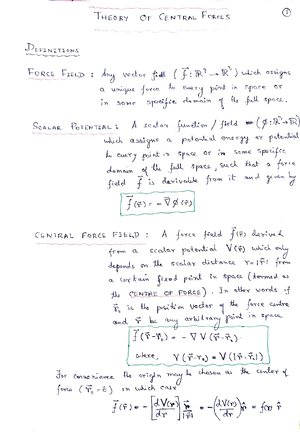 THEORY OF CENTRAL FORCES
1
DEFINITIONS
FORCE FIELD : Any vector field ( f⃗ : ℝ³ → ℝ³ ) which assigns
a unique force to every point in space or
in some specific domain of the full space.
SCALAR POTENTIAL : A scalar function / field (φ : ℝ³ → ℝ)
which assigns a potential energy or potential
to every point in space or in some specific
domain of the full space, such that a force
field f⃗ is derivable from it and given by
f⃗(r⃗) = - ∇φ(r⃗)
CENTRAL FORCE FIELD : A force field f⃗(r⃗) derived
from a scalar potential V(r⃗) which only
depends on the scalar distance r=|r⃗| from
a certain fixed point in space (termed as
the CENTRE OF FORCE). In other words if
r⃗₀ is the position vector of the force centre
and r⃗ be any arbitrary point in space
f⃗(r⃗-r⃗₀) = - ∇V(r⃗-r⃗₀)
where, V(r⃗-r⃗₀) = V(|r⃗-r⃗₀|)
For convenience the origin may be chosen as the center of
force (r⃗₀ = 0) in which case
f⃗(r⃗) = - [dV(r)/dr] r⃗/|r⃗| = -(dV(r)/dr) r̂ = f(r) r̂